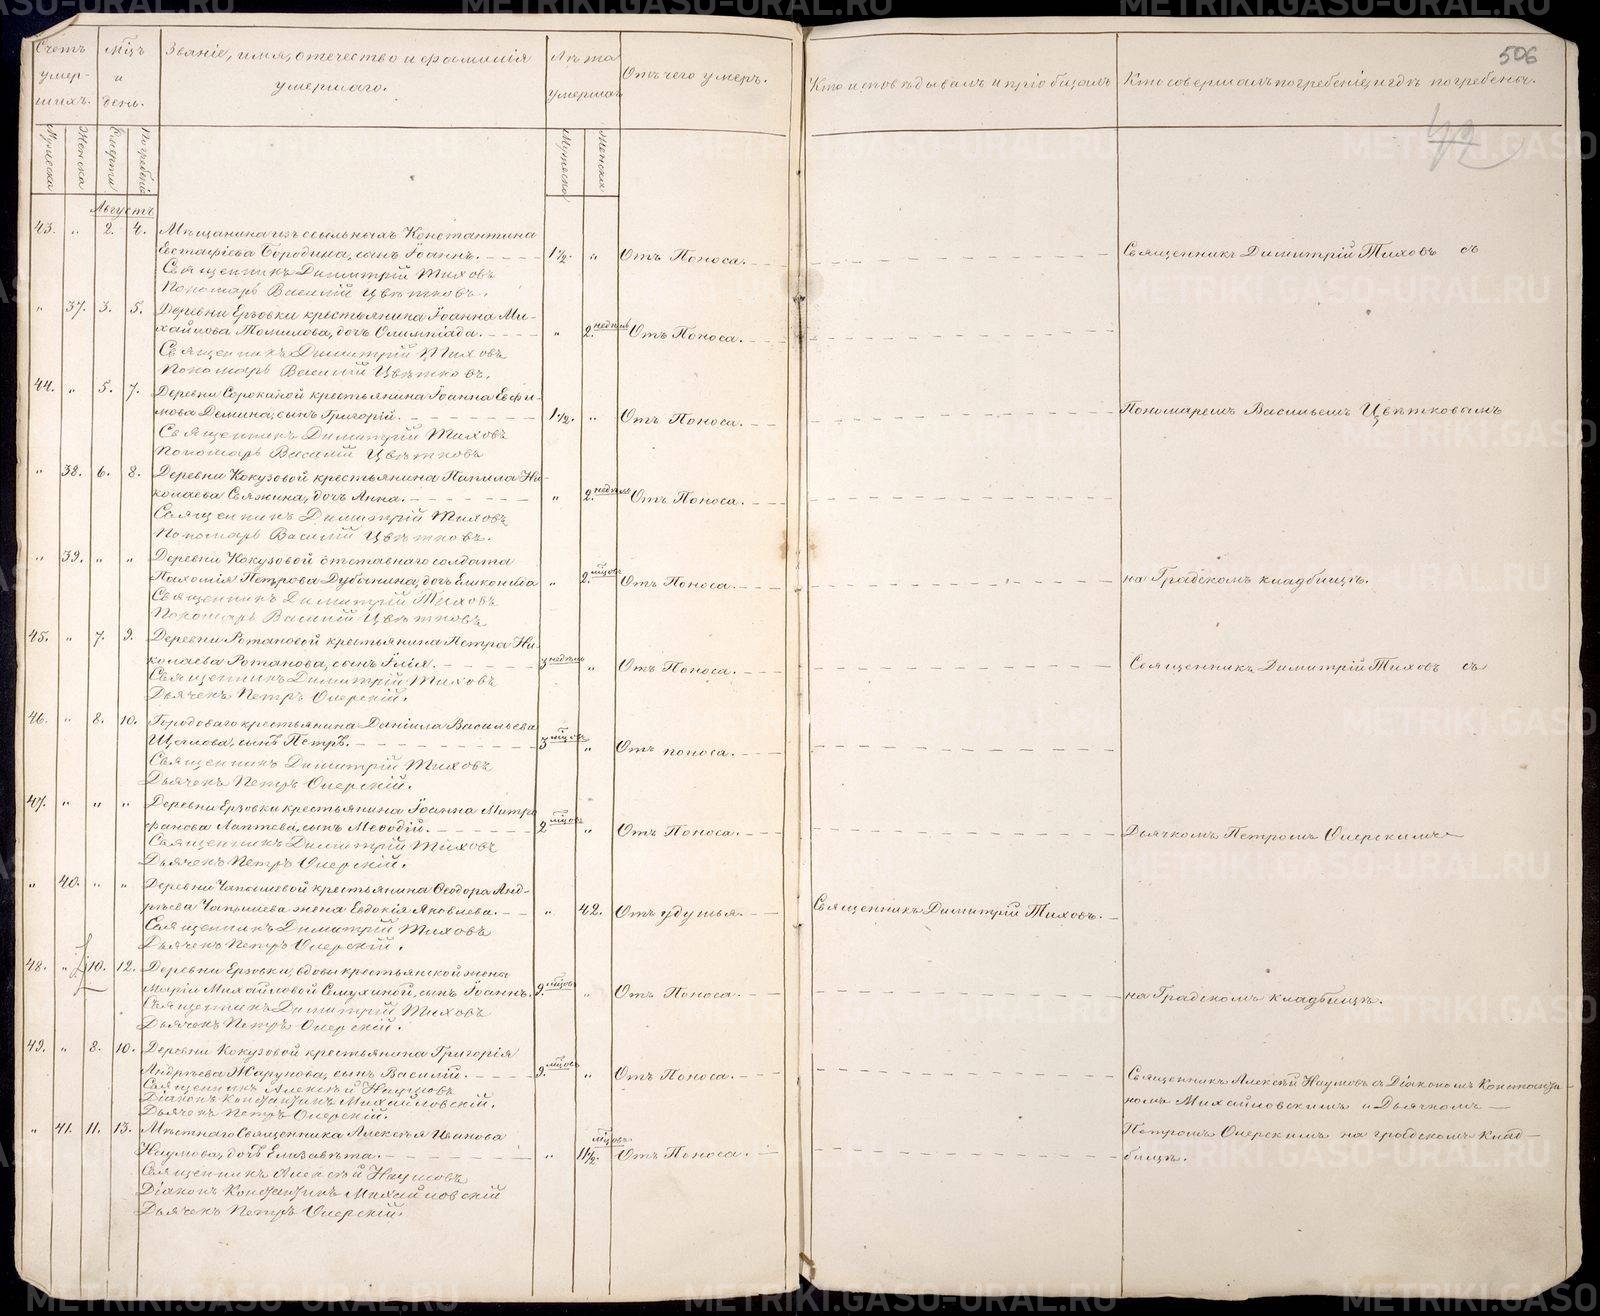 506
Счетъ умер- шихъ.
Мѣсяцъ и день.
Званіе, имя, отечество и фамилія умершаго.
Лѣта умершаго
Отъ чего умеръ.
Кто исповѣдывалъ и пріобщалъ
Кто совершалъ погребеніе, и гдѣ погребены.
Мужеска
Женска
Смерти
Погребенія
Мужеска
Женска
Августъ
43. „ 2. 4. Мѣщанина изъ ссыльныхъ Константина
Евстафіева Бородина, сынъ Іоаннъ. 1½. „ Отъ Поноса. Священникъ Димитрій Тиховъ съ
Священникъ Димитрій Тиховъ
Пономарь Василій Цвѣтковъ.
„ 37. 3. 5. Деревни Ерзовки крестьянина Іоанна Ми-
хайлова Томилова, дочь Олимпіада. „ 2. недѣль Отъ Поноса.
Священникъ Димитрій Тиховъ
Пономарь Василій Цвѣтковъ.
44. „ 5. 7. Деревни Сорокиной крестьянина Іоанна Евфи-
мова Демина, сынъ Григорій. 1½. „ Отъ Поноса. Пономаремъ Васильемъ Цвѣтковымъ
Священникъ Димитрій Тиховъ
Пономарь Василій Цвѣтковъ
„ 38. 6. 8. Деревни Кокузовой крестьянина Панила Ни-
колаева Свяжина, дочь Анна. „ 2. недѣль Отъ Поноса.
Священникъ Димитрій Тиховъ
Пономарь Василій Цвѣтковъ.
„ 39. „ „ Деревни Кокузовой отставнаго солдата
Пахомія Петрова Дубанина, дочь „ 2. мѣсцовъ Отъ Поноса. на Градскомъ кладбищѣ.
Священникъ Димитрій Тиховъ
Пономарь Василій Цвѣтковъ
45. „ 7. 9. Деревни Ротановой крестьянина Петра Ни-
колаева Ротанова, сынъ Илія. 3 недѣль „ Отъ Поноса. Священникъ Димитрій Тиховъ съ
Священникъ Димитрій Тиховъ
Дьячекъ Петръ Оперскій.
46. „ 8. 10. Городоваго крестьянина Даніила Васильева
Щеглова, сынъ Петръ. 3 мѣсцовъ „ Отъ поноса.
Священникъ Димитрій Тиховъ
Дьячекъ Петръ Оперскій.
47. „ „ „ Деревни Ерзовки крестьянина Іоанна Митро
фанова Лаптева, сынъ Меѳодій. 2 мѣсцовъ „ Отъ Поноса. Дьячкомъ Петромъ Оперскимъ
Священникъ Димитрій Тиховъ
Дьячекъ Петръ Оперскій.
„ 40. „ „ Деревни Чапышевой крестьянина Ѳеодора Анд-
рѣева Чапышева жена Евдокія Яковлева. „ 42. Отъ удушья. Священникъ Димитрій Тиховъ.
Священникъ Димитрій Тиховъ
Дьячекъ Петръ Оперскій.
48. „ 10. 12. Деревни Ерзовки, вдовы крестьянской жена
Маріи Михайловой Семухиной, сынъ Іоаннъ. 9. мѣсцовъ „ Отъ Поноса. на Градскомъ кладбищѣ.
Священникъ Димитрій Тиховъ
Дьячекъ Петръ Оперскій.
49. „ 8. 10. Деревни Кокузовой крестьянина Григорія
Андрѣева Жарунова, сынъ Василій. 9. мѣсцовъ „ Отъ Поноса. Священникъ Алексѣй Наумовъ съ Діакономъ Константи-
Священникъ Алексѣй Наумовъ
Діаконъ Константинъ Михайловскій. номъ Михайловскимъ и Дьячкомъ
Дьячекъ Петръ Оперскій.
„ 41. 11. 13. Мѣстнаго Священника Алексѣя Иванова Петромъ Оперскимъ на градскомъ клад-
Наумова, дочь Елизавета. „ 11½. мѣсцовъ Отъ Поноса. бищѣ.
Священникъ Алексѣй Наумовъ
Діаконъ Константинъ Михайловскій
Дьячекъ Петръ Оперскій.
METRIKI.GASO-URAL.RU